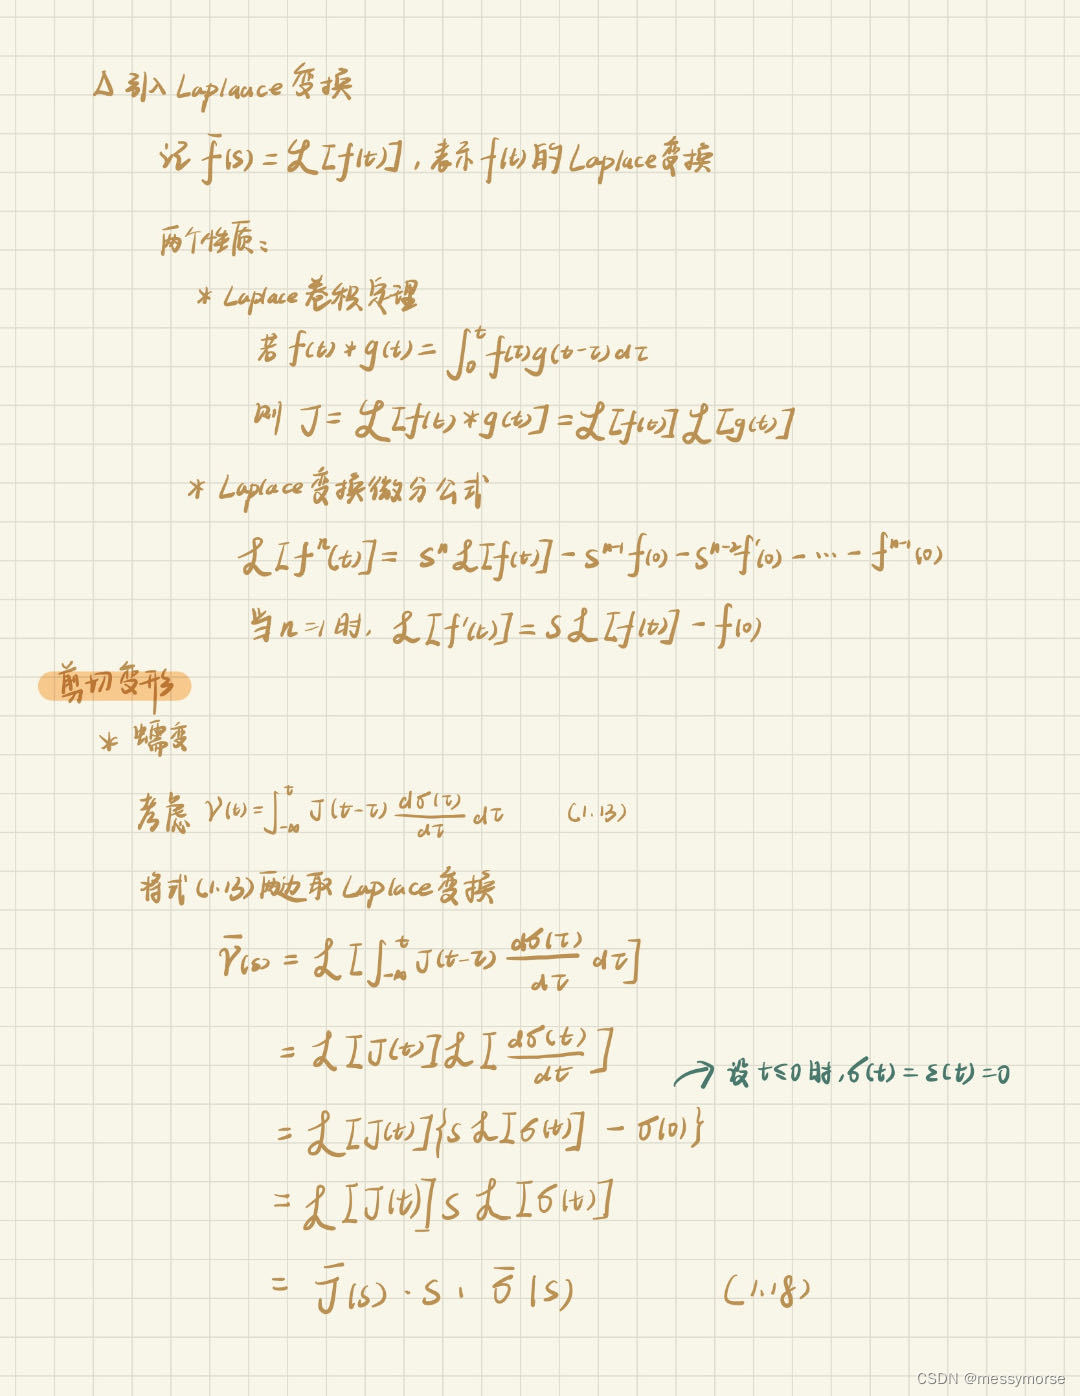 Δ 引入 Laplauce 变换
记 f̄(s) = ℒ[f(t)], 表示 f(t) 的 Laplace 变换
两个性质:
* Laplace 卷积定理
若 f(t) * g(t) = ∫₀ᵗ f(τ)g(t-τ)dτ
则 J = ℒ[f(t) * g(t)] = ℒ[f(t)] ℒ[g(t)]
* Laplace 变换微分公式
ℒ[fⁿ(t)] = sⁿ ℒ[f(t)] - sⁿ⁻¹ f(0) - sⁿ⁻² f'(0) - ... - fⁿ⁻¹(0)
当 n=1 时, ℒ[f'(t)] = s ℒ[f(t)] - f(0)
剪切变形
* 蠕变
考虑 γ(t) = ∫_{-∞}^{t} J(t-τ) dσ(τ)/dτ dτ (1.13)
将式(1.13)两边取 Laplace 变换
γ̄(s) = ℒ[∫_{-∞}^{t} J(t-τ) dσ(τ)/dτ dτ]
= ℒ[J(t)] ℒ[dσ(t)/dt]
→ 设 t≤0 时, σ(t) = ε(t) = 0
= ℒ[J(t)]{s ℒ[σ(t)] - σ(0)}
= ℒ[J(t)] s ℒ[σ(t)]
= J̄(s) · s · σ̄(s) (1.18)
CSDN @messymorse